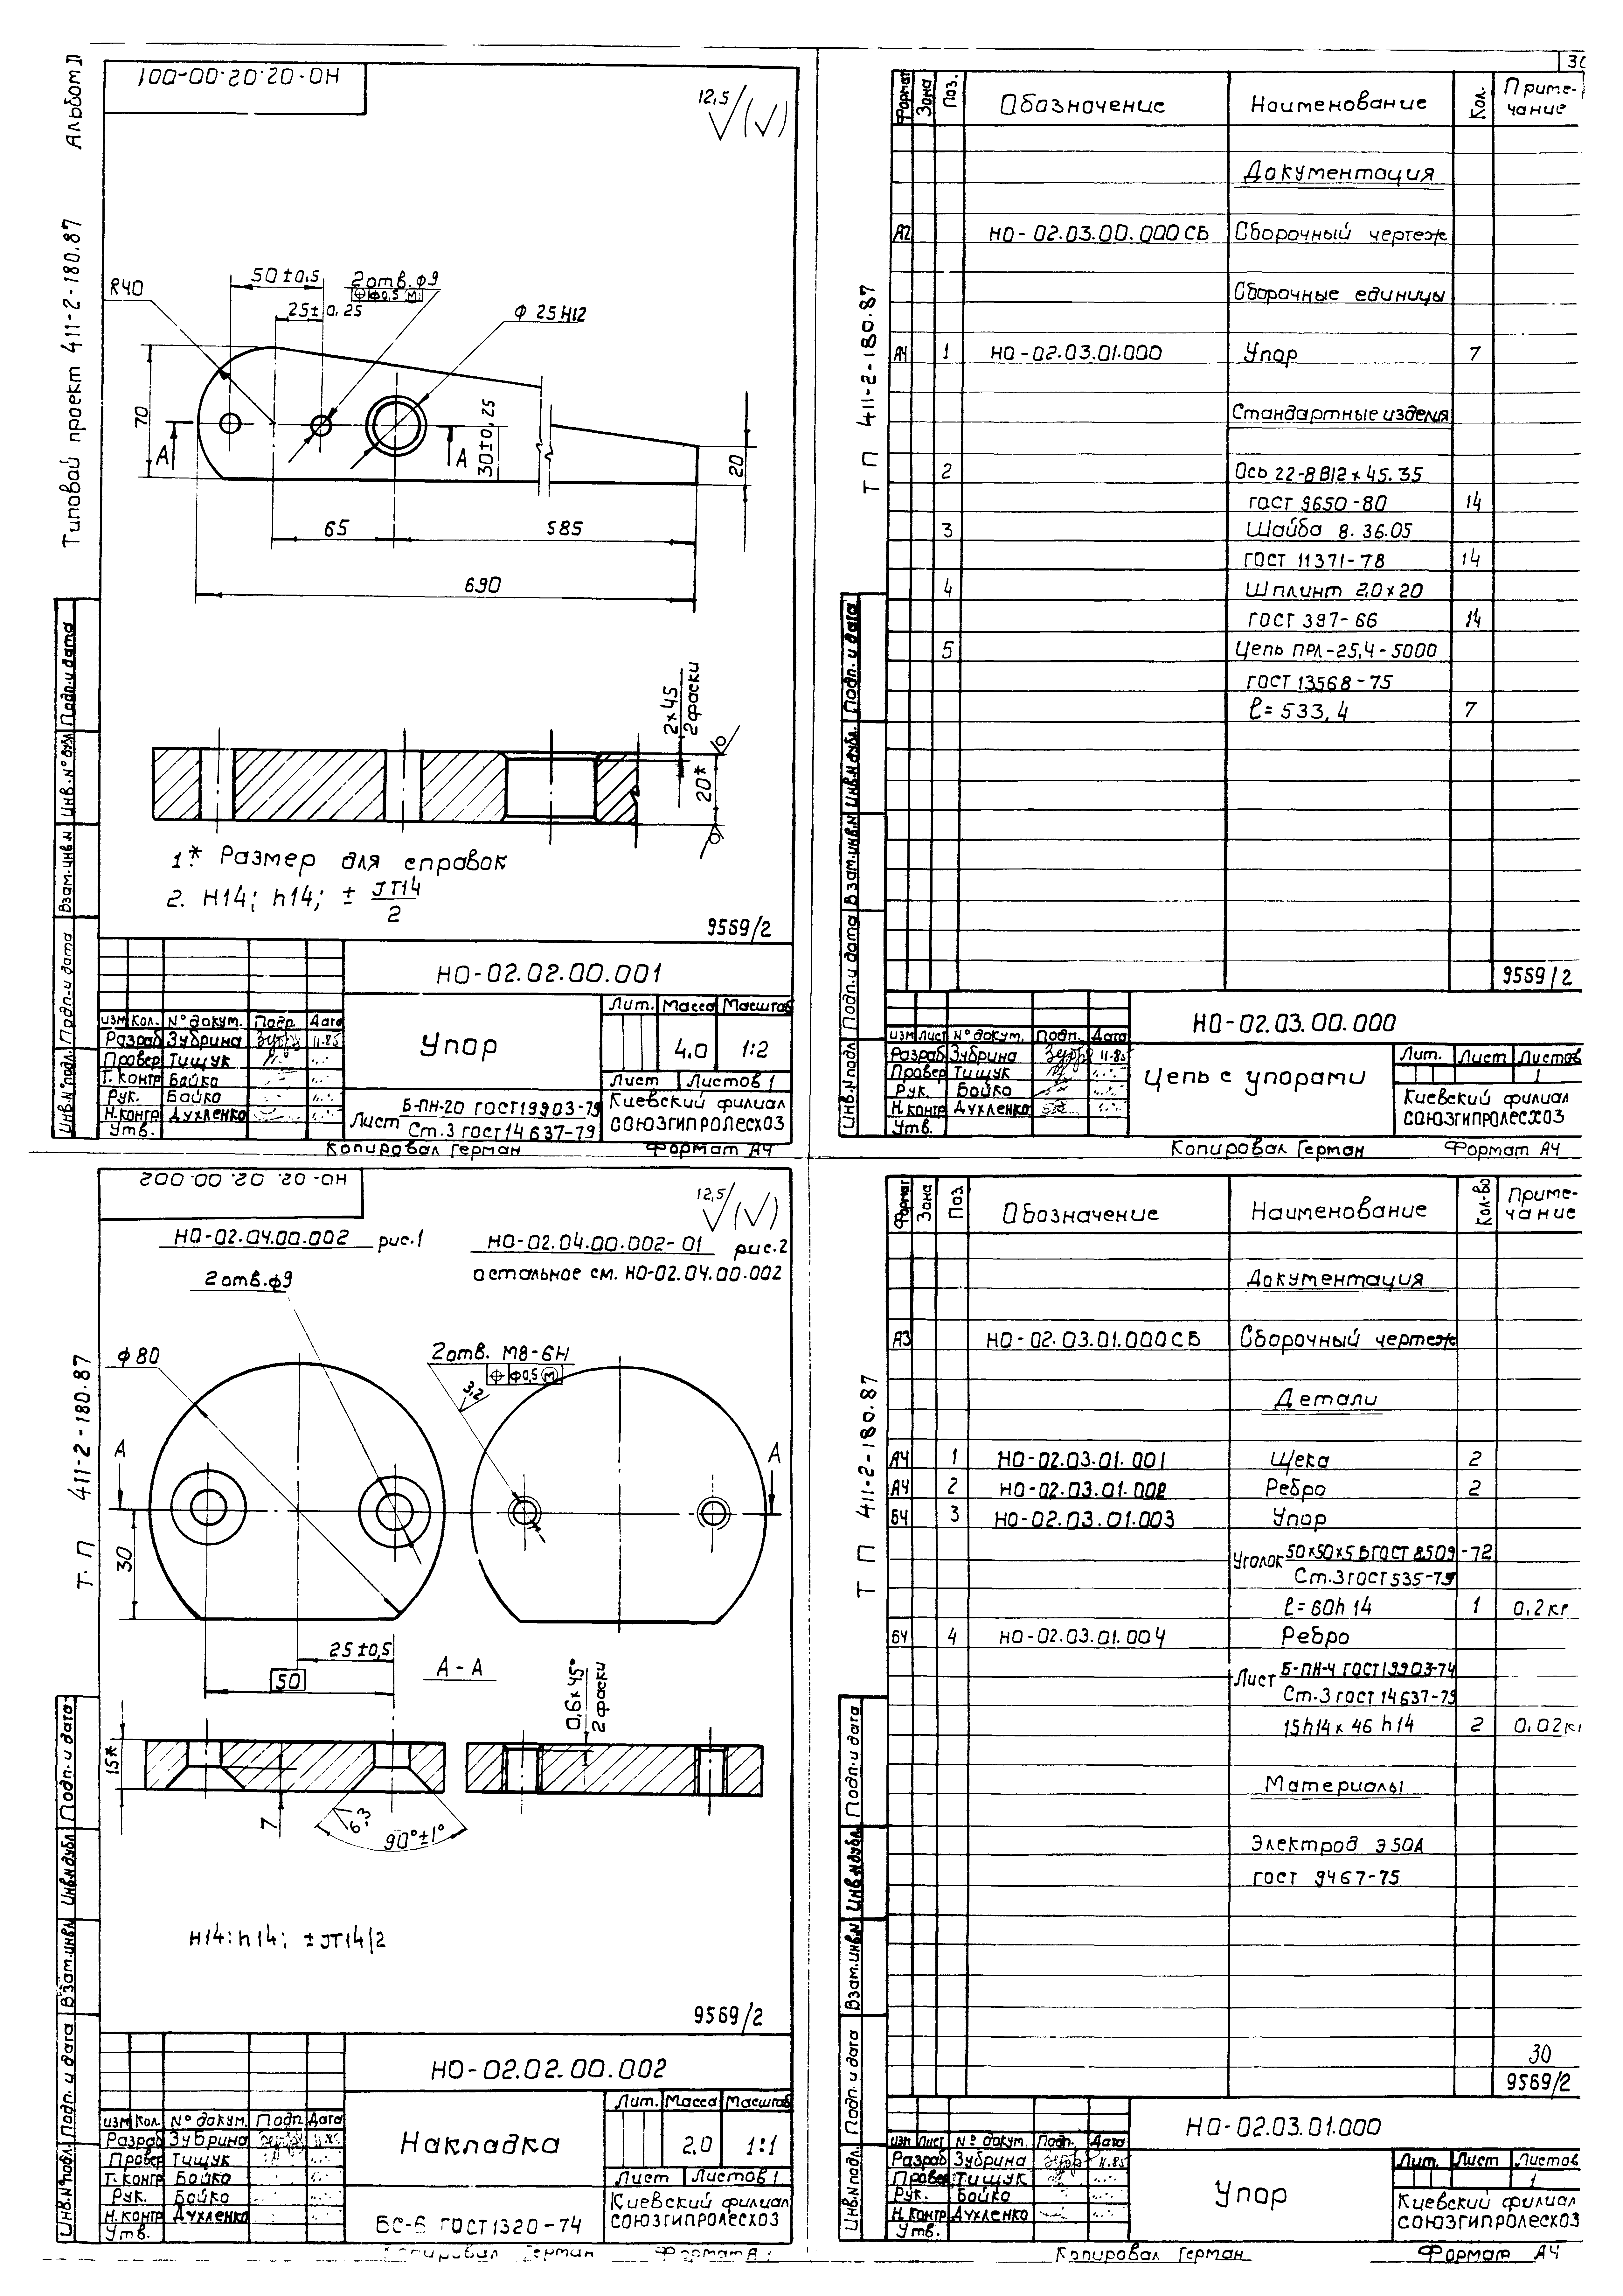 Альбом II
Типовой проект 411-2-180.87
НО-02.02.00-001
12,5
(√)
R40
50±0,5
25±0,25
2 отв. φ9
⌖ φ0,5 М
φ 25Н12
70
А
А
30±0,25
20
65
585
690
2×45
2 фаски
20*
1.* Размер для справок
2. Н14; h14; ± JT14/2
9559/2
НО-02.02.00.001
Изм Кол. № докум. Подп. Дата
Разраб Зубрина 11.85
Провер Тищук
Т. контр Бойко
Рук. Бойко
Н.контр Духленко
Утв.
Упор
Лит. Масса Масштаб
4.0 1:2
Лист Листов 1
Лист Б-ПН-20 ГОСТ19903-79
Ст.3 ГОСТ14637-79
Киевский филиал
СОЮЗГИПРОЛЕСХОЗ
Копировал Герман Формат А4
Инв.№ подл. Подп. и дата Взам.инв.№ Инв.№ дубл. Подп. и дата
30
ТП 411-2-180.87
Формат Зона Поз. Обозначение Наименование Кол. Примечание
Документация
А2 НО-02.03.00.000СБ Сборочный чертеж
Сборочные единицы
А4 1 НО-02.03.01.000 Упор 7
Стандартные изделия
2 Ось 22-8В12×45.35
ГОСТ 9650-80 14
3 Шайба 8.36.05
ГОСТ 11371-78 14
4 Шплинт 2,0×20
ГОСТ 397-66 14
5 Цепь ПРЛ-25,4-5000
ГОСТ 13568-75
ℓ=533,4 7
9559/2
НО-02.03.00.000
Изм Лист № докум. Подп. Дата
Разраб Зубрина 11.85
Провер Тищук
Рук. Бойко
Н.контр Духленко
Утв.
Цепь с упорами
Лит. Лист Листов
1
Киевский филиал
СОЮЗГИПРОЛЕСХОЗ
Копировал Герман Формат А4
Инв.№ подл. Подп. и дата Взам.инв.№ Инв.№ дубл. Подп. и дата
Т.П 411-2-180.87
НО-02.02.00.002
12,5
(√)
НО-02.04.00.002 рис.1
НО-02.04.00.002-01 рис.2
остальное см. НО-02.04.00.002
2 отв. φ9
φ80
2 отв. М8-6Н
⌖ φ0,5 М
3,2
А
А
30
25±0,5
50
А-А
0,6×45°
2 фаски
15*
7
6.3
90°±1°
Н14: h14; ±JT14/2
9569/2
НО-02.02.00.002
Изм Кол. № докум. Подп Дата
Разраб Зубрина
Провер Тищук
Т. контр Бойко
Рук. Бойко
Н.контр Духленко
Утв.
Накладка
Лит. Масса Масштаб
2.0 1:1
Лист Листов 1
БС-6 ГОСТ1320-74
Киевский филиал
СОЮЗГИПРОЛЕСХОЗ
Копировал Герман Формат А4
Инв.№ подл. Подп. и дата Взам.инв.№ Инв.№ дубл. Подп. и дата
ТП 411-2-180.87
Формат Зона Поз. Обозначение Наименование Кол-во Примечание
Документация
А3 НО-02.03.01.000СБ Сборочный чертеж
Детали
А4 1 НО-02.03.01.001 Щека 2
А4 2 НО-02.03.01.002 Ребро 2
БЧ 3 НО-02.03.01.003 Упор
Уголок 50×50×5 Б ГОСТ 8509-72
Ст.3 ГОСТ 535-79
ℓ=60h14 1 0,2кг
БЧ 4 НО-02.03.01.004 Ребро
Лист Б-ПН-4 ГОСТ19903-74
Ст.3 ГОСТ 14637-79
15h14×46h14 2 0,02кг
Материалы
Электрод Э50А
ГОСТ 9467-75
30
9569/2
НО-02.03.01.000
Изм Лист № докум. Подп. Дата
Разраб Зубрина 11.85
Провер Тищук
Рук. Бойко
Н.контр Духленко
Утв.
Упор
Лит. Лист Листов
1
Киевский филиал
СОЮЗГИПРОЛЕСХОЗ
Копировал Герман Формат А4
Инв.№ подл. Подп. и дата Взам.инв.№ Инв.№ дубл. Подп. и дата